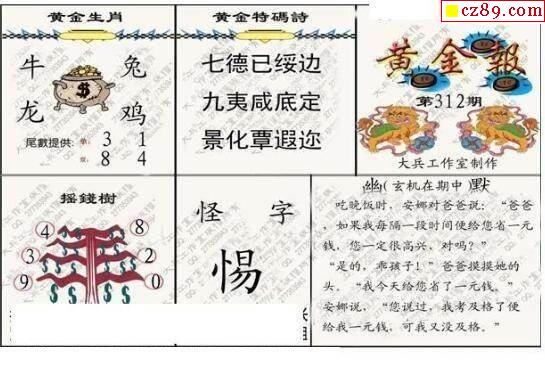 cz89.com
黄金生肖
牛 兔
龙 鸡
尾數提供: 单: 3 1
双: 8 4
黄金特碼詩
七德已绥边
九夷咸底定
景化覃遐迩
黄金報
第312期
大兵工作室制作
摇錢樹
4 8
3 2
9 0
怪 字
惕
幽(玄机在期中)默
吃晚饭时，安娜对爸爸说："爸爸
，如果我每隔一段时间便给您省一元
钱，您一定很高兴，对吗？"
"是的，乖孩子！"爸爸摸摸她的
头，"我今天给您省了一元钱。"
安娜说，"您说过，我考及格了便
给我一元钱，可我又没及格。"